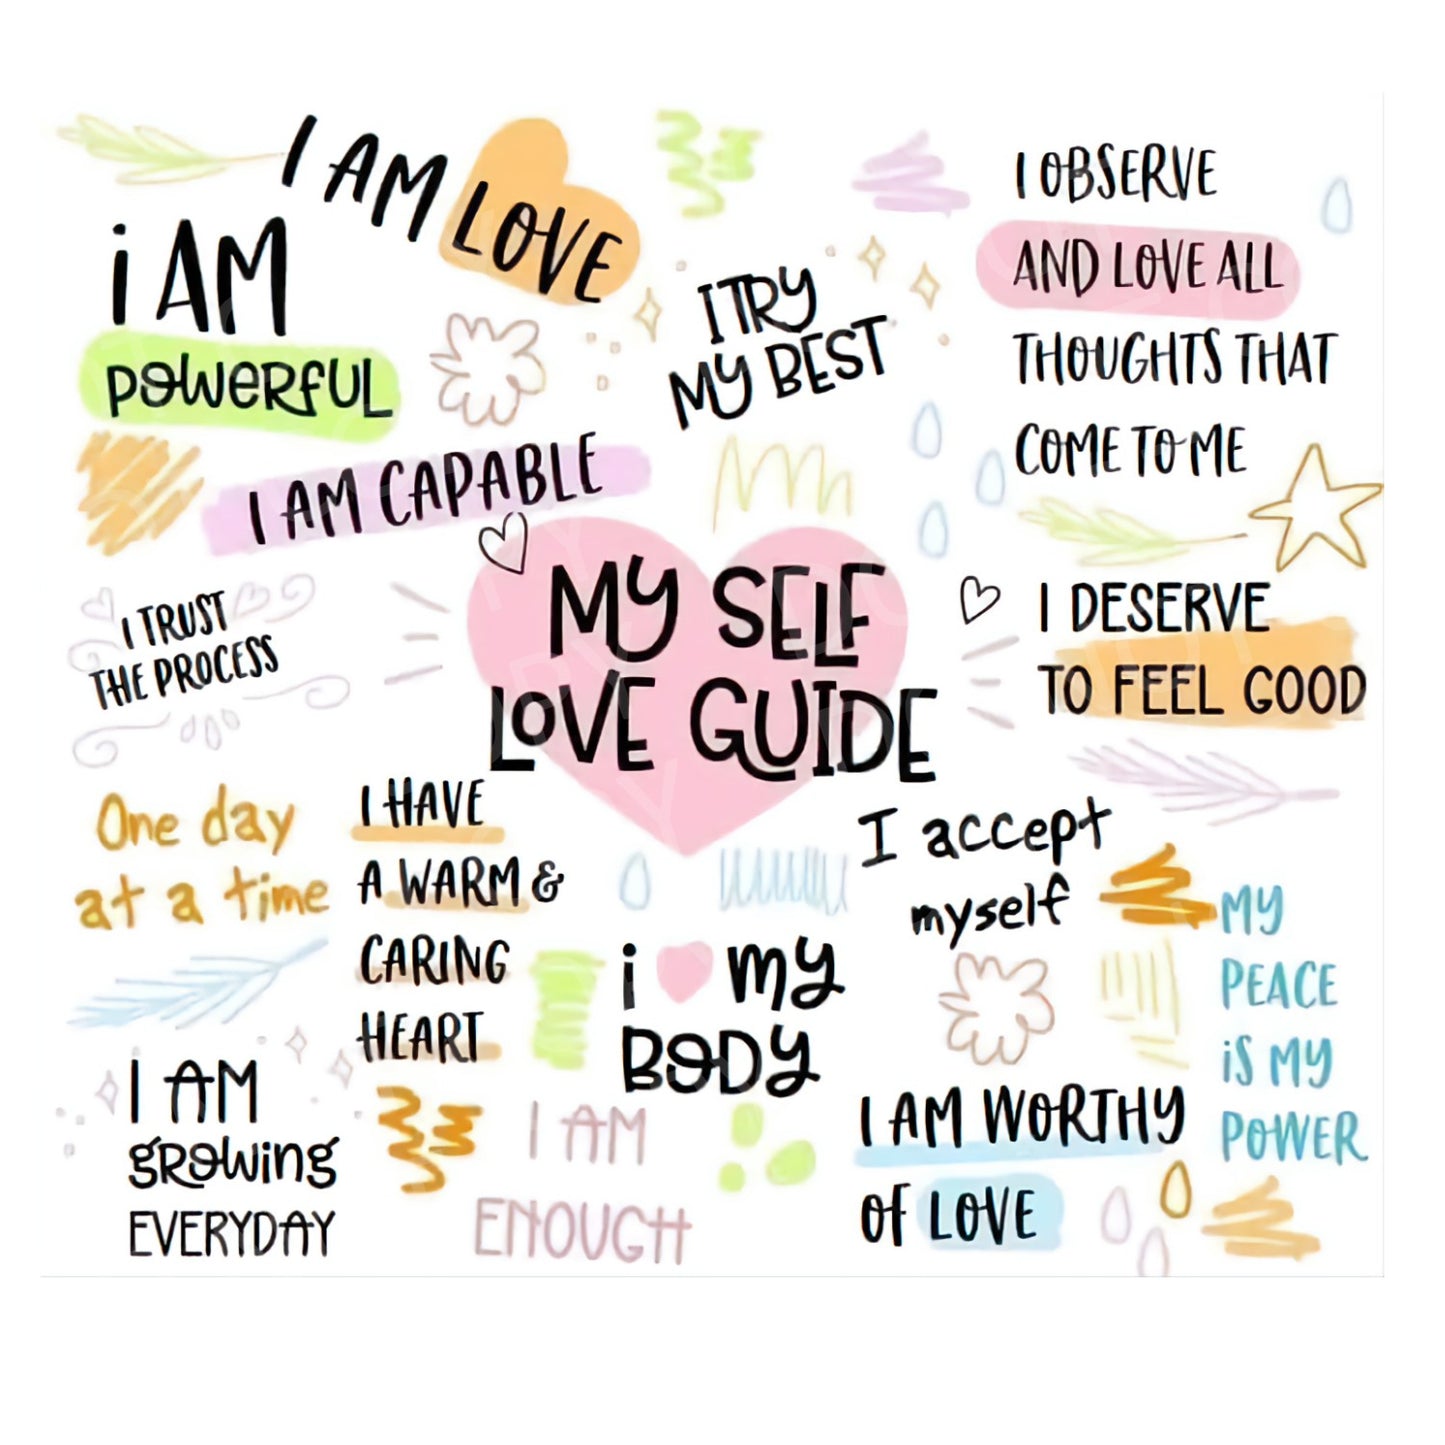 I AM LOVE
i AM
POWERFUL
I AM CAPABLE
I TRY
MY BEST
I OBSERVE
AND LOVE ALL
THOUGHTS THAT
COME TO ME
I TRUST
THE PROCESS
MY SELF
LOVE GUIDE
I DESERVE
TO FEEL GOOD
One day
at a time
I HAVE
A WARM &
CARING
HEART
I accept
myself
i my
BODY
MY
PEACE
iS MY
POWER
I AM
gROWing
EVERYDAY
I AM
ENOUGH
I AM WORTHY
Of LOVE